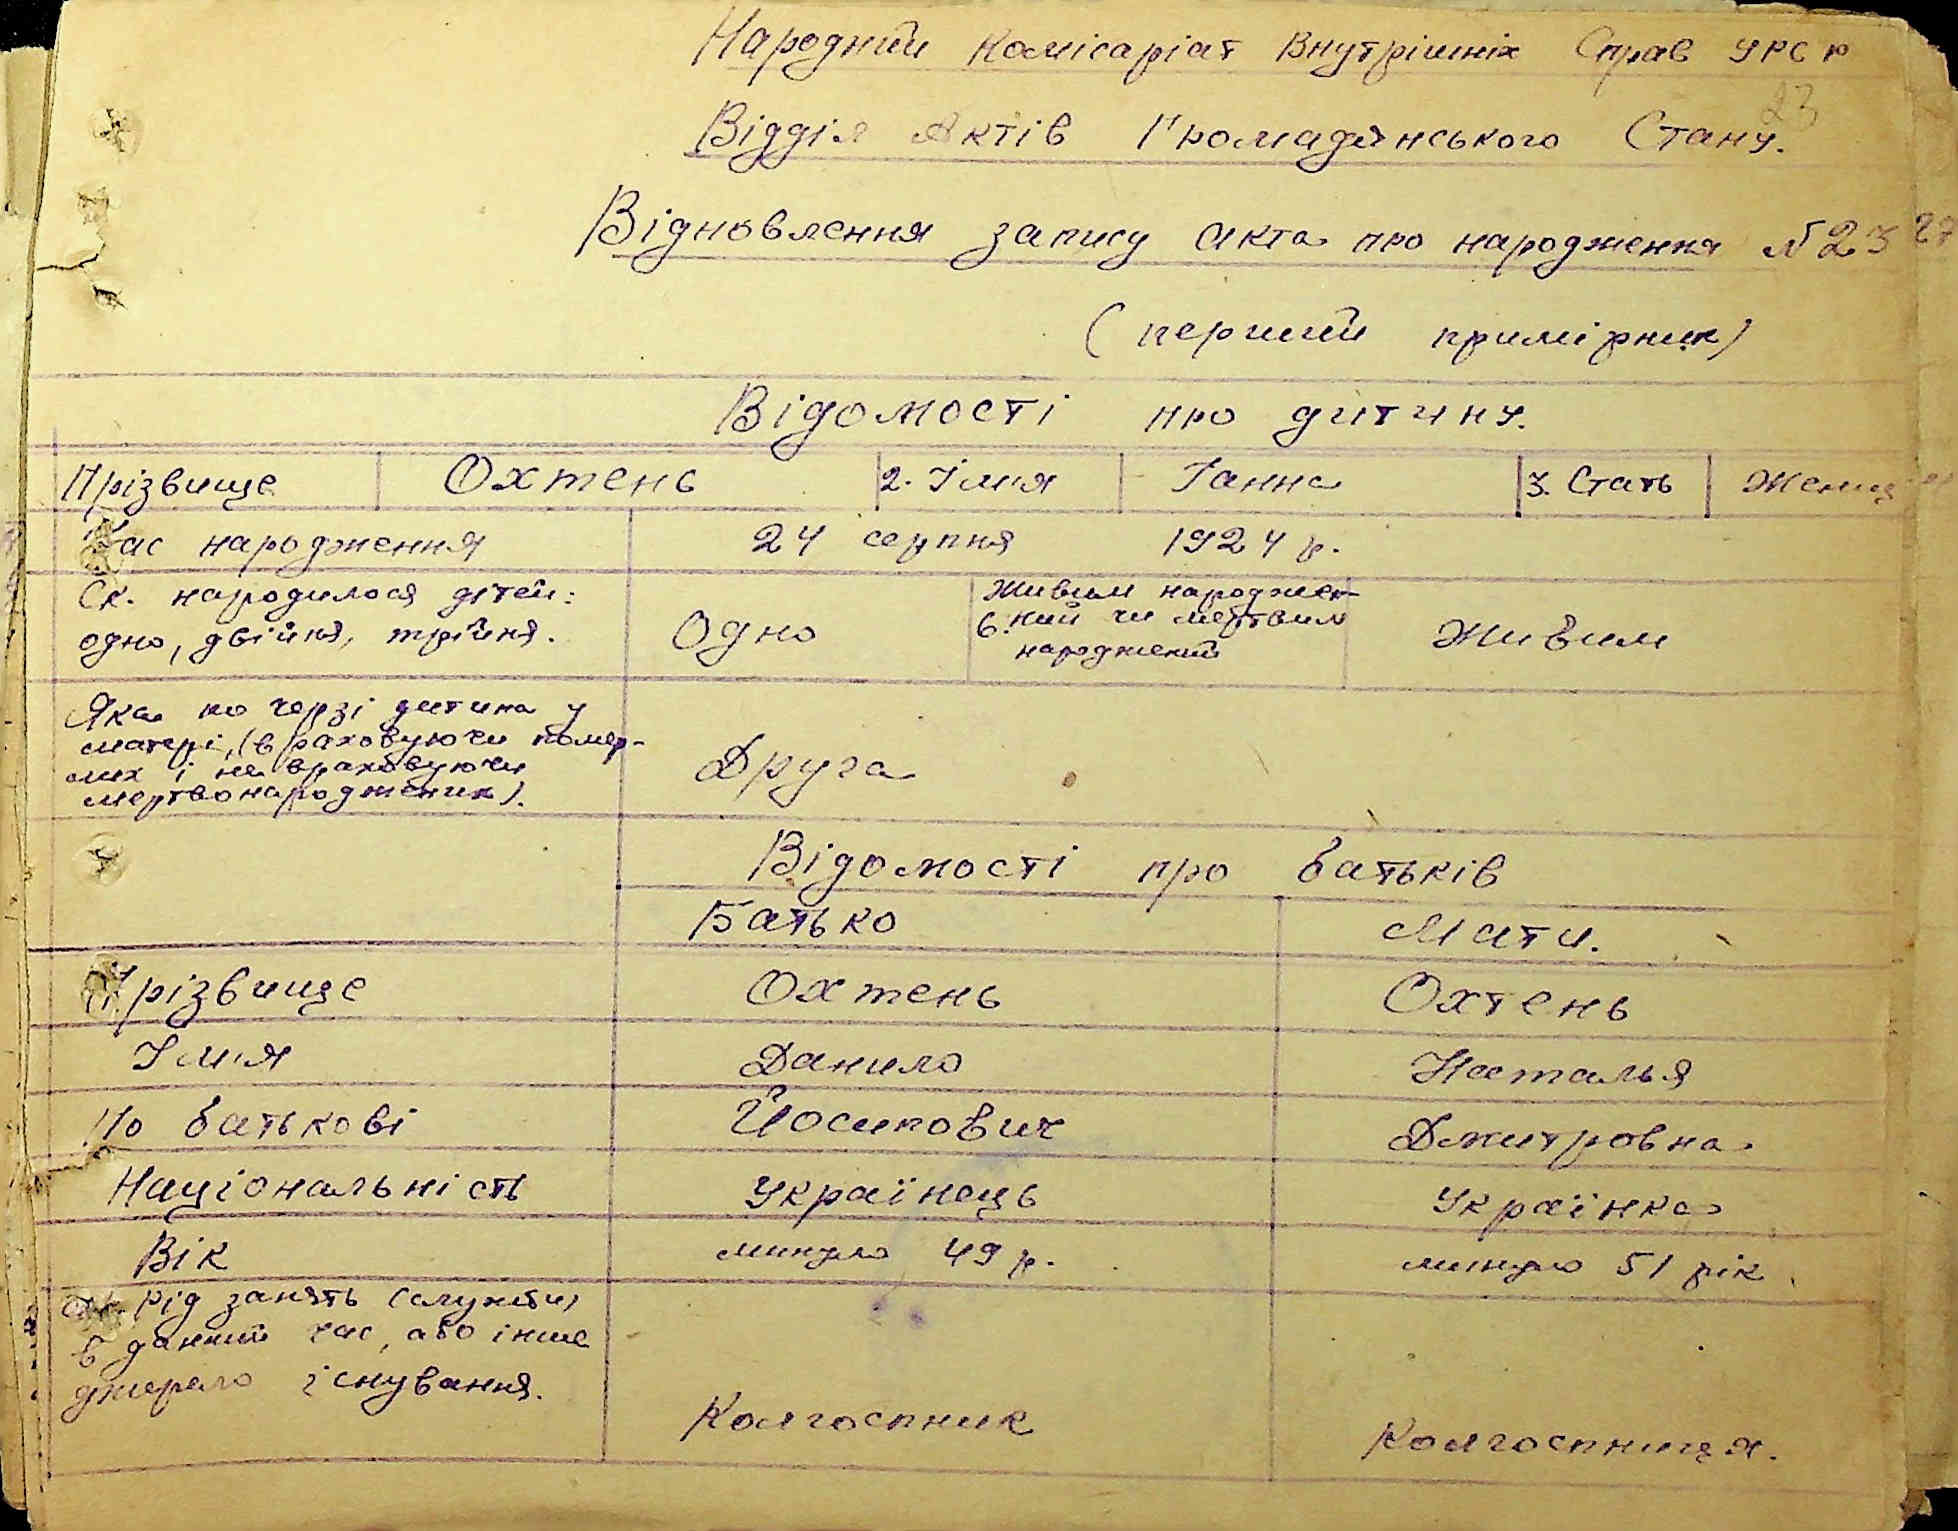 Народний Комісаріат Внутрішніх Справ УРСР
23
Відділ Актів Громадянського Стану.
Відновлення запису акта про народження №23
27
(перший примірник)
Відомості про дитину.
Прізвище Охтень 2. Ім'я Ганна 3. Стать
Час народження 24 серпня 1924 р.
Ск. народилося дітей: одно, двійня, трійня. Одно 6. Живим народжений чи мертвим народжений Живим
Яка по черзі дитина у
матері, (враховуючи помер-
лих і не враховуючи
мертвонароджених). Друга
Відомості про батьків
Батько Мати.
Прізвище Охтень Охтень
Ім'я Данило Наталья
По батькові Йосипович Дмитровна
Національність Українець Українка
Вік минуло 49 р. минуло 51 рік
Рід занять (служби)
в данний час, або інше
джерело існування.
Колгоспник Колгоспниця.